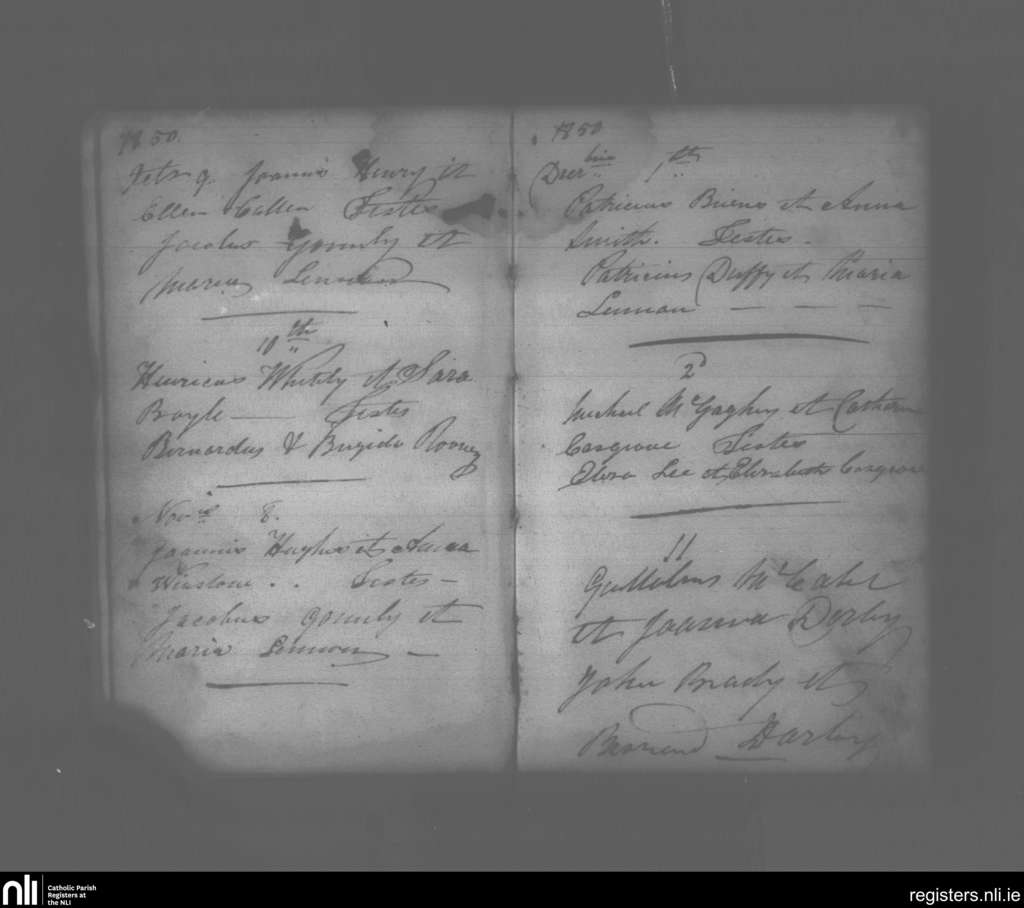 1850.
9. Joannis Henry et
Ellen Callen Testes
Jacobus et
Maria Lennon
10th
Henricus et Sara
Boyle — Testes
Bernardus & Brigida Rooney
Nov 8.
Joannis Hughes et Anna
Winslow . . Testes —
Jacobus et
Maria Lennon —
1850
1th
Patricius Briens et Anna
Smith. Testes.
Patricius Duffy et Maria
Lennan — — —
2d
Michael McGaghey et
Cosgrove Testes
Lee et Elizabeth Cosgrove
11
Gullielmus McCabe
et Joanna Derby
John Brady et
Darby
nli
Catholic Parish
Registers at
the NLI
registers.nli.ie